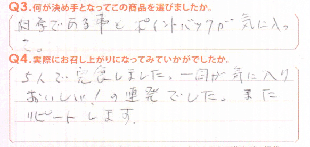 Q3.何が決め手となってこの商品を選びましたか。
付き である事と ポイントバックが気に入っ
た。
Q4.実際にお召し上がりになってみていかがでしたか。
5人で完食しました。一同が気に入り
おいしい!の連発でした。また
リピートします。